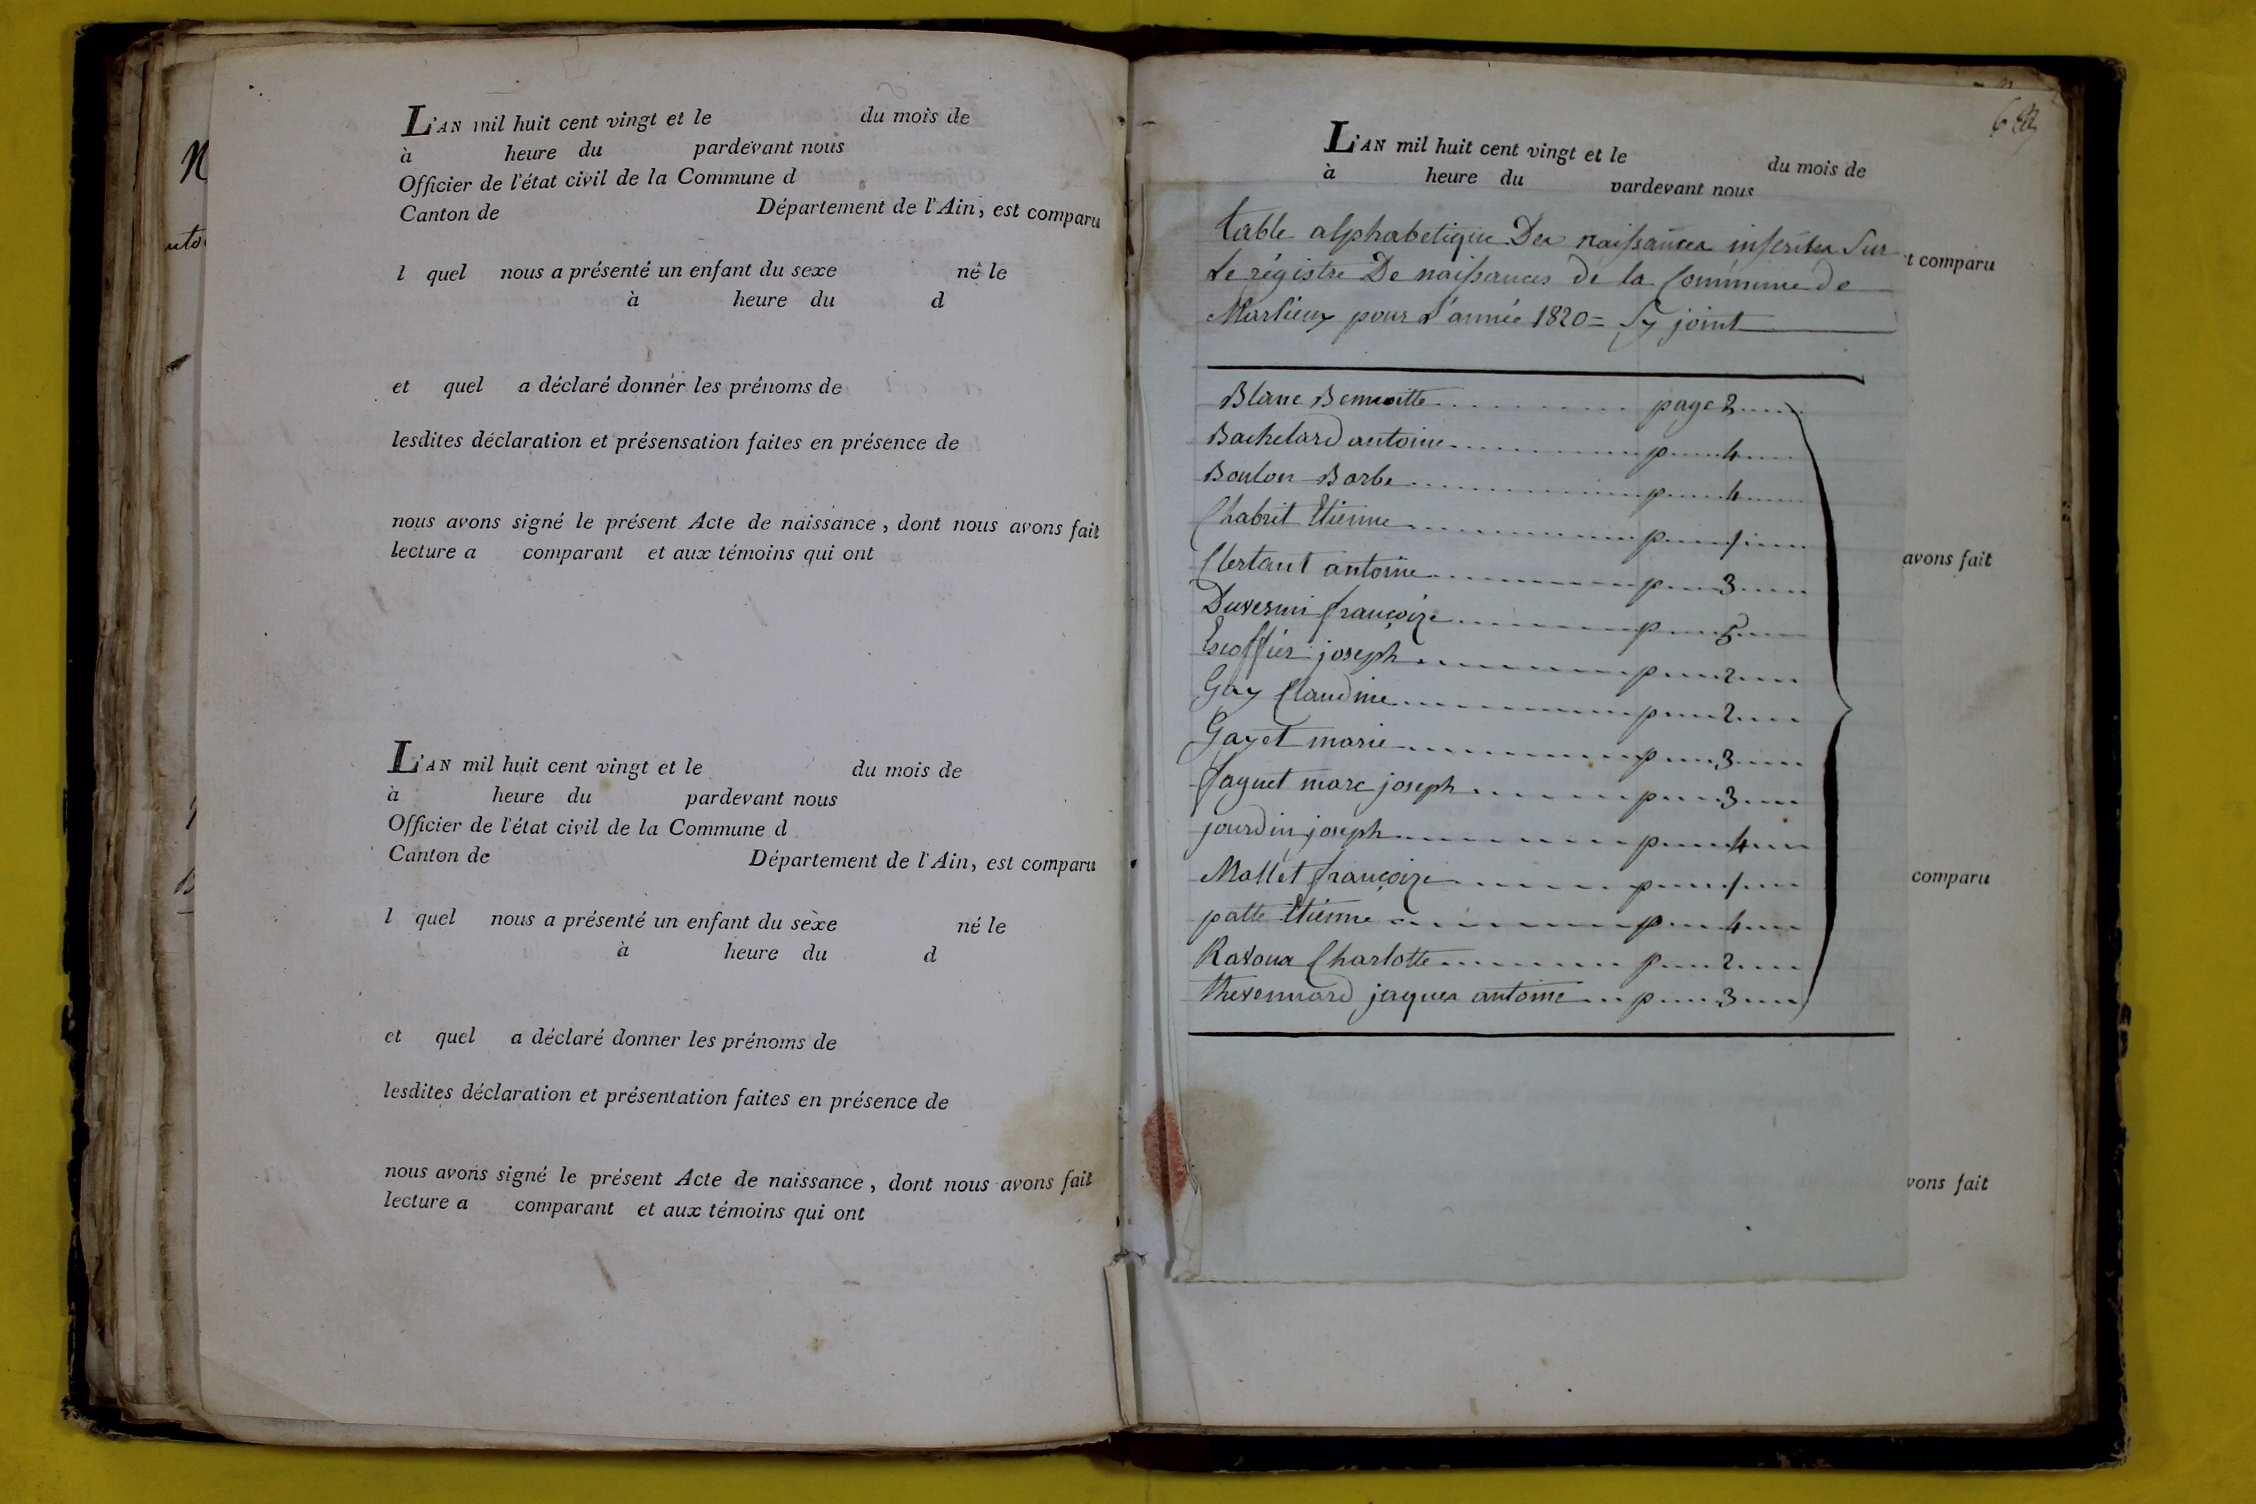 L'AN mil huit cent vingt et le du mois de
à heure du pardevant nous
Officier de l'état civil de la Commune d
Canton de Département de l'Ain, est comparu
l quel nous a présenté un enfant du sexe né le
à heure du d
et quel a déclaré donner les prénoms de
lesdites déclaration et présensation faites en présence de
nous avons signé le présent Acte de naissance, dont nous avons fait
lecture a comparant et aux témoins qui ont
L'AN mil huit cent vingt et le du mois de
à heure du pardevant nous
Officier de l'état civil de la Commune d
Canton de Département de l'Ain, est comparu
l quel nous a présenté un enfant du sexe né le
à heure du d
et quel a déclaré donner les prénoms de
lesdites déclaration et présentation faites en présence de
nous avons signé le présent Acte de naissance, dont nous avons fait
lecture a comparant et aux témoins qui ont
L'AN mil huit cent vingt et le du mois de
à heure du pardevant nous
table alphabetique Des naissances inscrites Sur
t comparu
Le régistre De naissances de la Commune de
Marlieux pour l'année 1820 = Cy joint
Blanc Benoitte page 2
Bachelard antoine p 4
Boulon Barbe p 4
Chabrit Etienne p 1
Clertant antoine p 3
avons fait
Duvernin françoize p 5
Escoffier joseph p 2
Gay Claudine p 2
Gayet marie p 3
Jaquet marc joseph p 3
jourdin joseph p 4
Mallet françoize p 1
comparu
patte Etienne p 4
Ravoux Charlotte p 2
thevennard jaques antoine p 3
vons fait